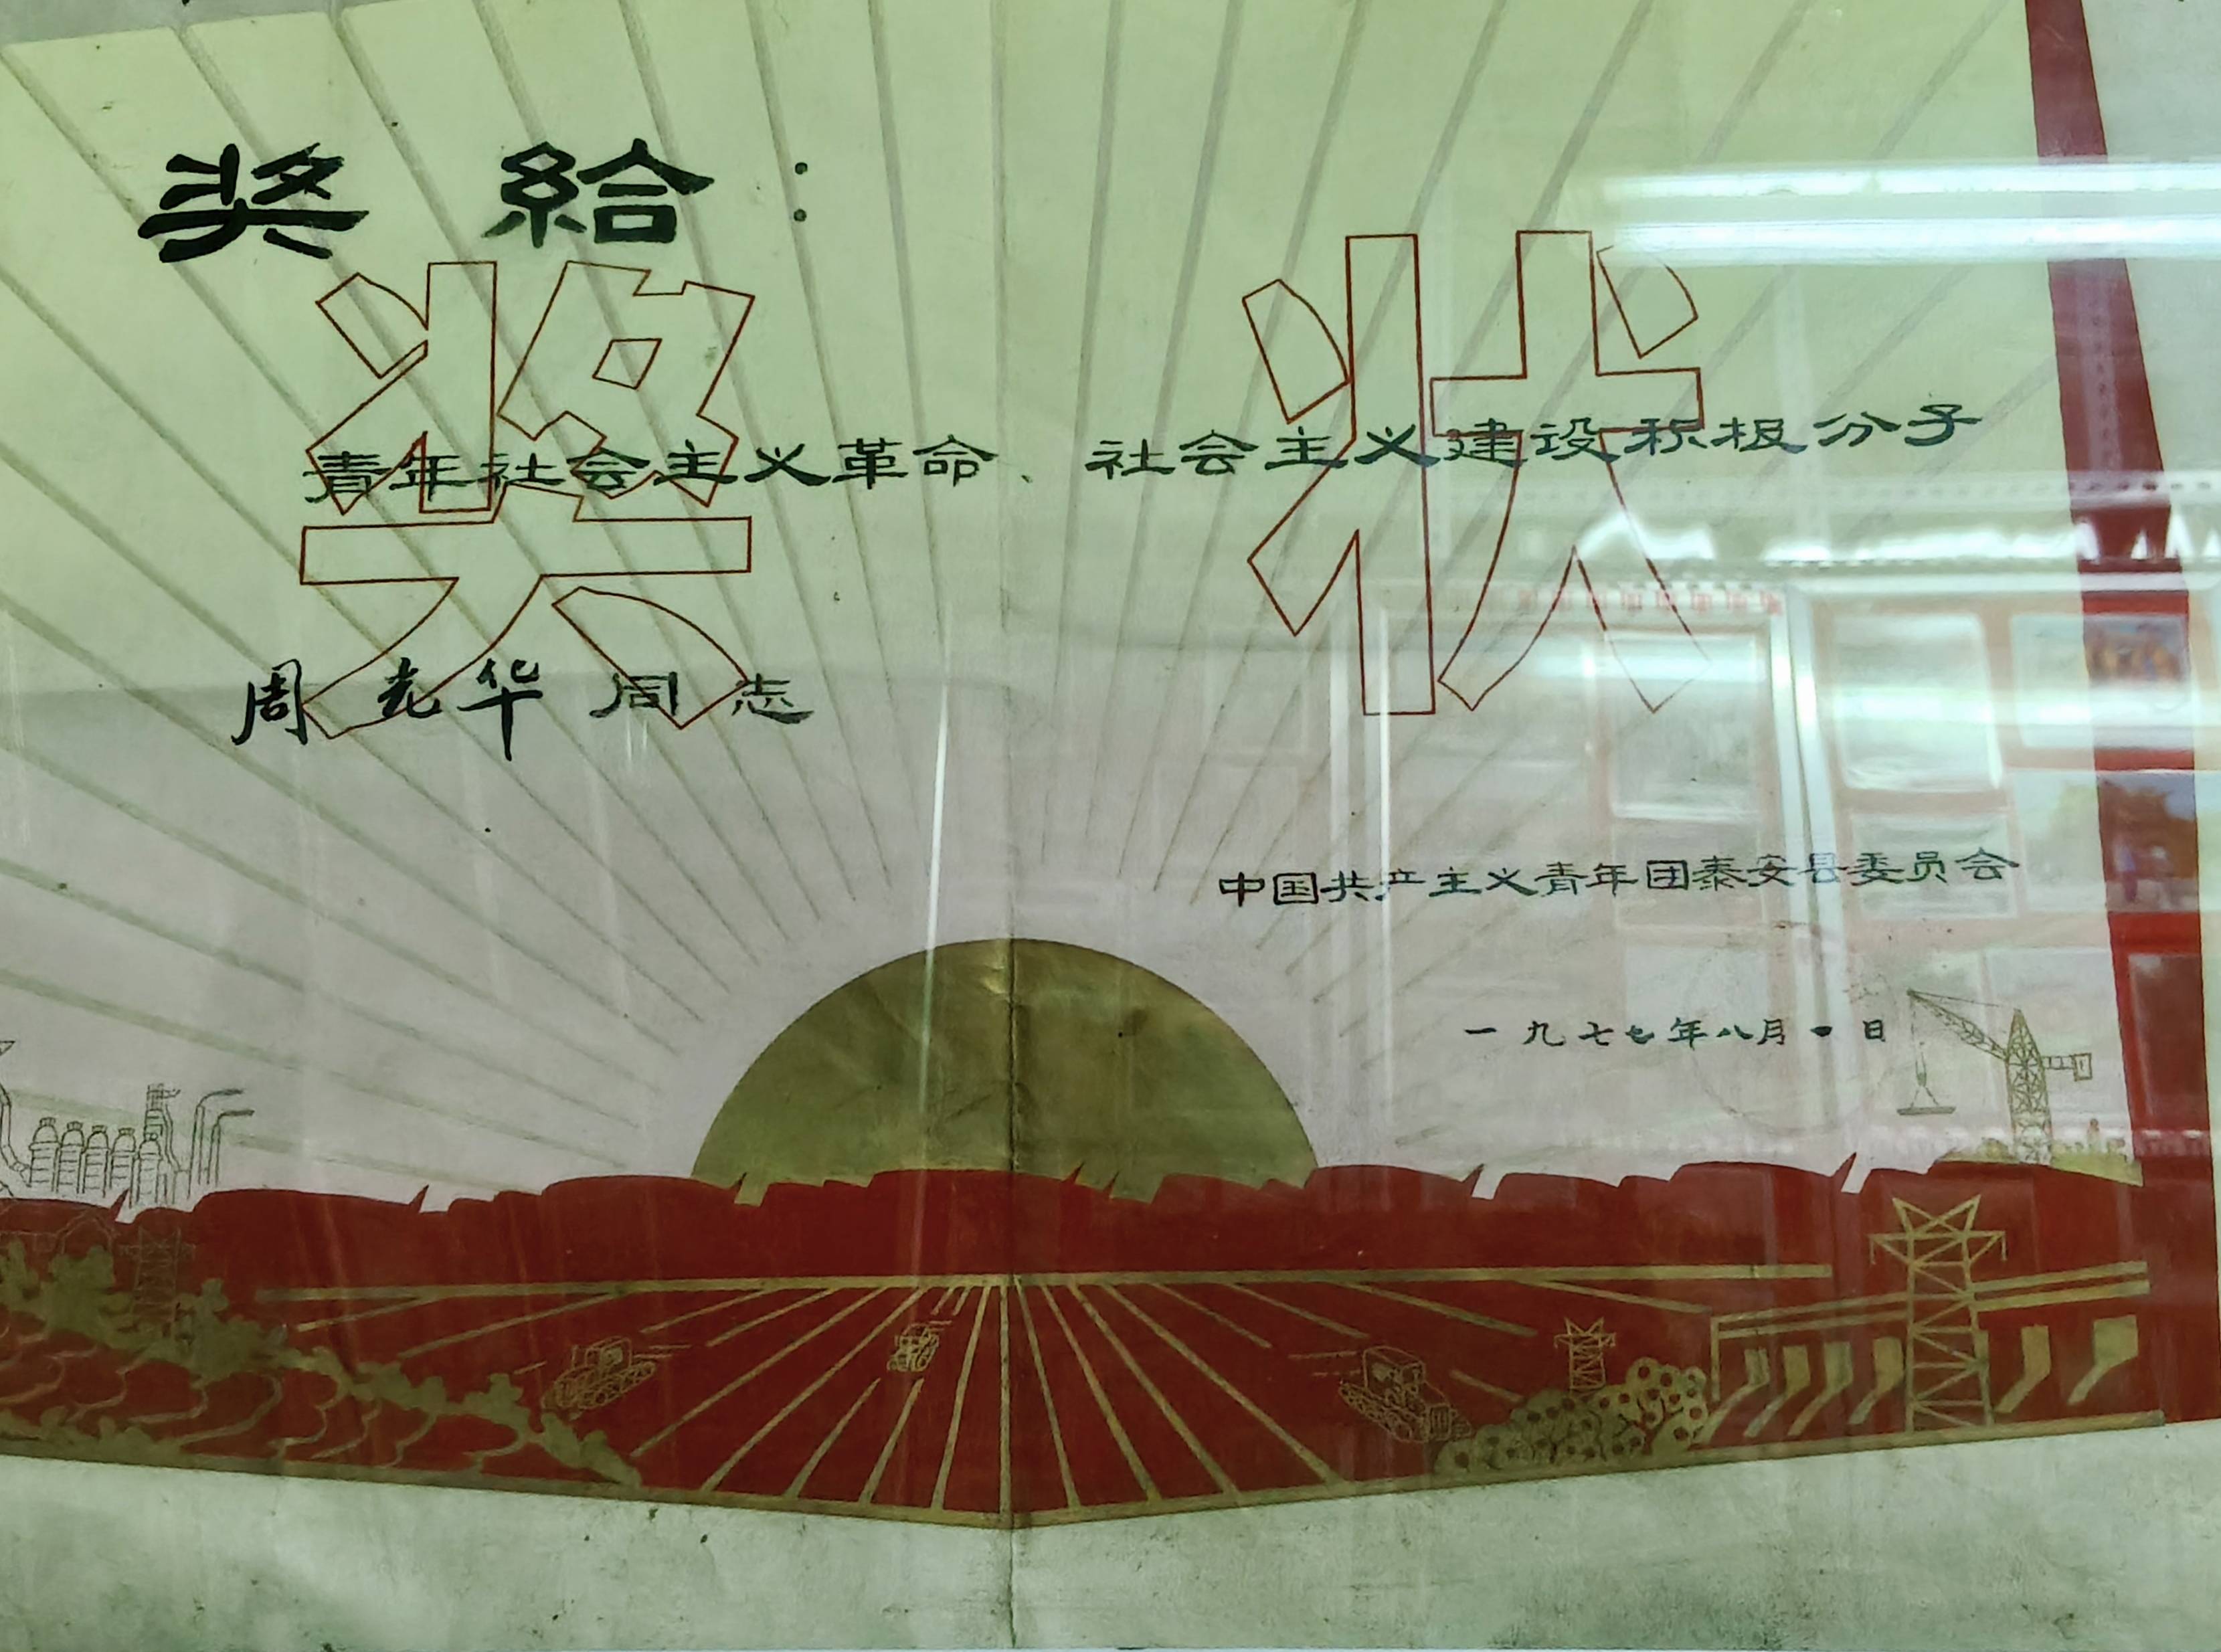 奖給：
奖状
青年社会主义革命、社会主义建设积极分子
周光华同志
中国共产主义青年团泰安县委员会
一九七七年八月 日